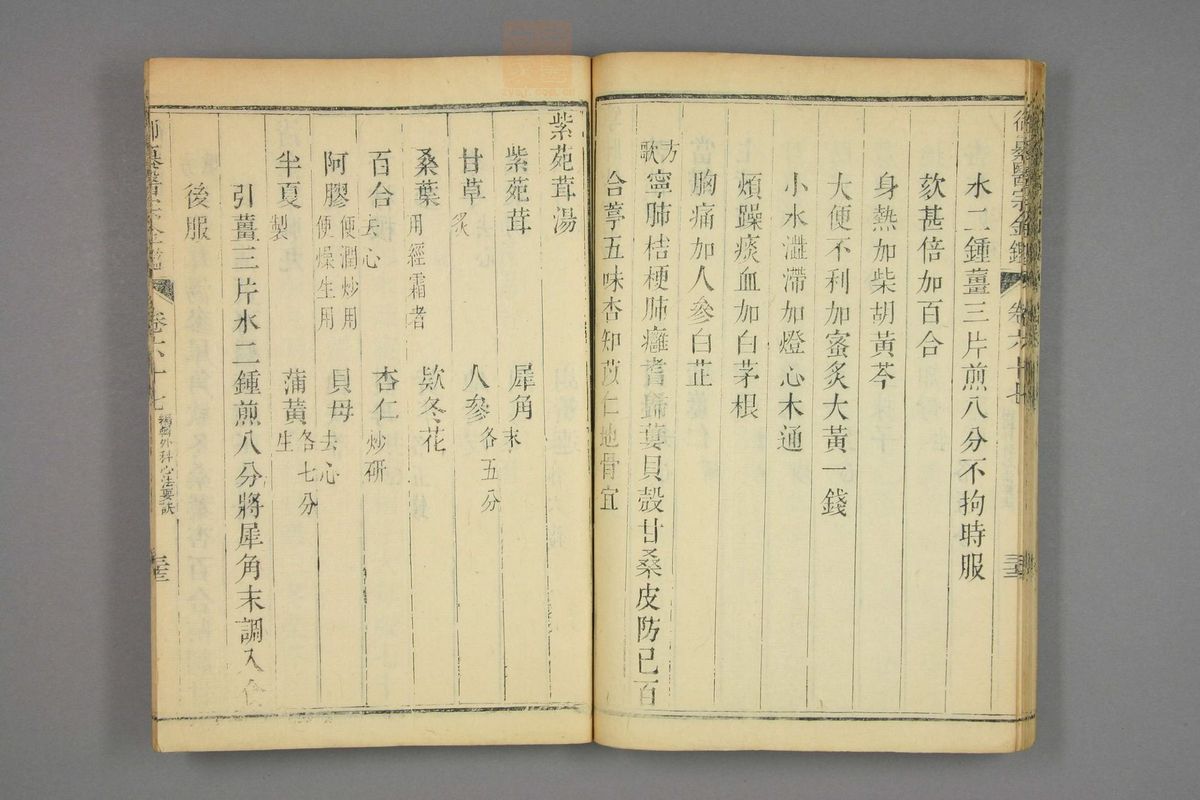 御纂醫宗金鑑 卷六十七
水二鍾薑三片煎八分不拘時服
欬甚倍加百合
身熱加柴胡黃芩
大便不利加蜜炙大黃一錢
小水澀滯加燈心木通
煩躁痰血加白茅根
胸痛加人參白芷
方歌 寧肺桔梗肺癰耆歸蔞貝殼甘桑皮防已百
合葶五味杏知苡仁地骨宜
紫苑茸湯
紫苑茸 犀角末
甘草炙 人參各五分
桑葉用經霜者 款冬花
百合去心 杏仁炒研
阿膠便潤炒用便燥生用 貝母去心
半夏製 蒲黃生各七分
引薑三片水二鍾煎八分將犀角末調入食
後服
御纂醫宗金鑑 卷六十七 編輯外科心法要訣